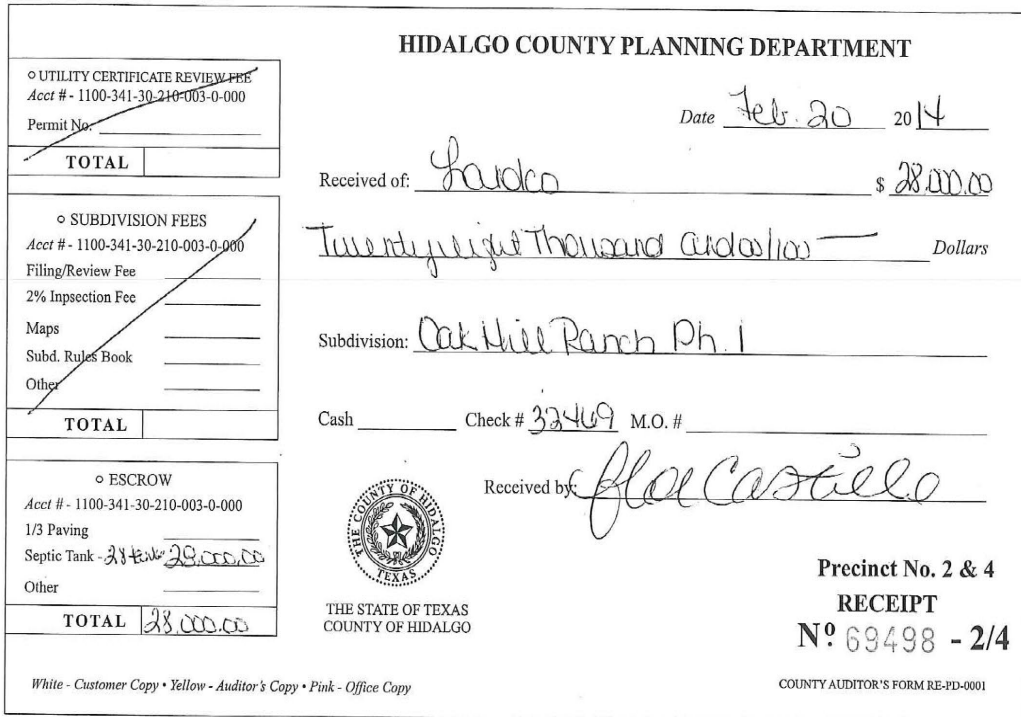 HIDALGO COUNTY PLANNING DEPARTMENT
○ UTILITY CERTIFICATE REVIEW FEE
Acct # - 1100-341-30-210-003-0-000
Permit No.
TOTAL
○ SUBDIVISION FEES
Acct # - 1100-341-30-210-003-0-000
Filing/Review Fee
2% Inpsection Fee
Maps
Subd. Rules Book
Other
TOTAL
○ ESCROW
Acct # - 1100-341-30-210-003-0-000
1/3 Paving
Septic Tank - 28 tanks 28,000.00
Other
TOTAL 28,000.00
Date Feb. 20 2014
Received of: $ 28,000.00
Twenty eight Thousand and 00/100 Dollars
Subdivision: Oak Hill Ranch Ph. 1
Cash Check # 32469 M.O. #
Received by: Castillo
THE COUNTY OF HIDALGO
TEXAS
THE STATE OF TEXAS
COUNTY OF HIDALGO
Precinct No. 2 & 4
RECEIPT
Nº 69498 - 2/4
White - Customer Copy • Yellow - Auditor's Copy • Pink - Office Copy
COUNTY AUDITOR'S FORM RE-PD-0001